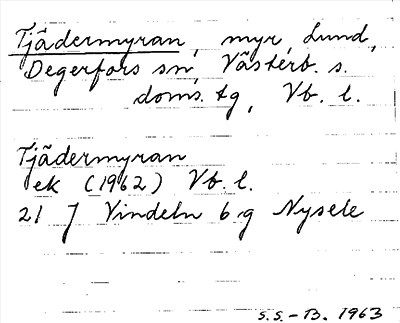 Tjädermyran, myr, Lund,
Degerfors sn, Västerb. s.
doms. tg, Vb. l.
Tjädermyran
ek (1962) Vb. l.
21 J Vindeln b g Nysele
S.S.-B. 1963